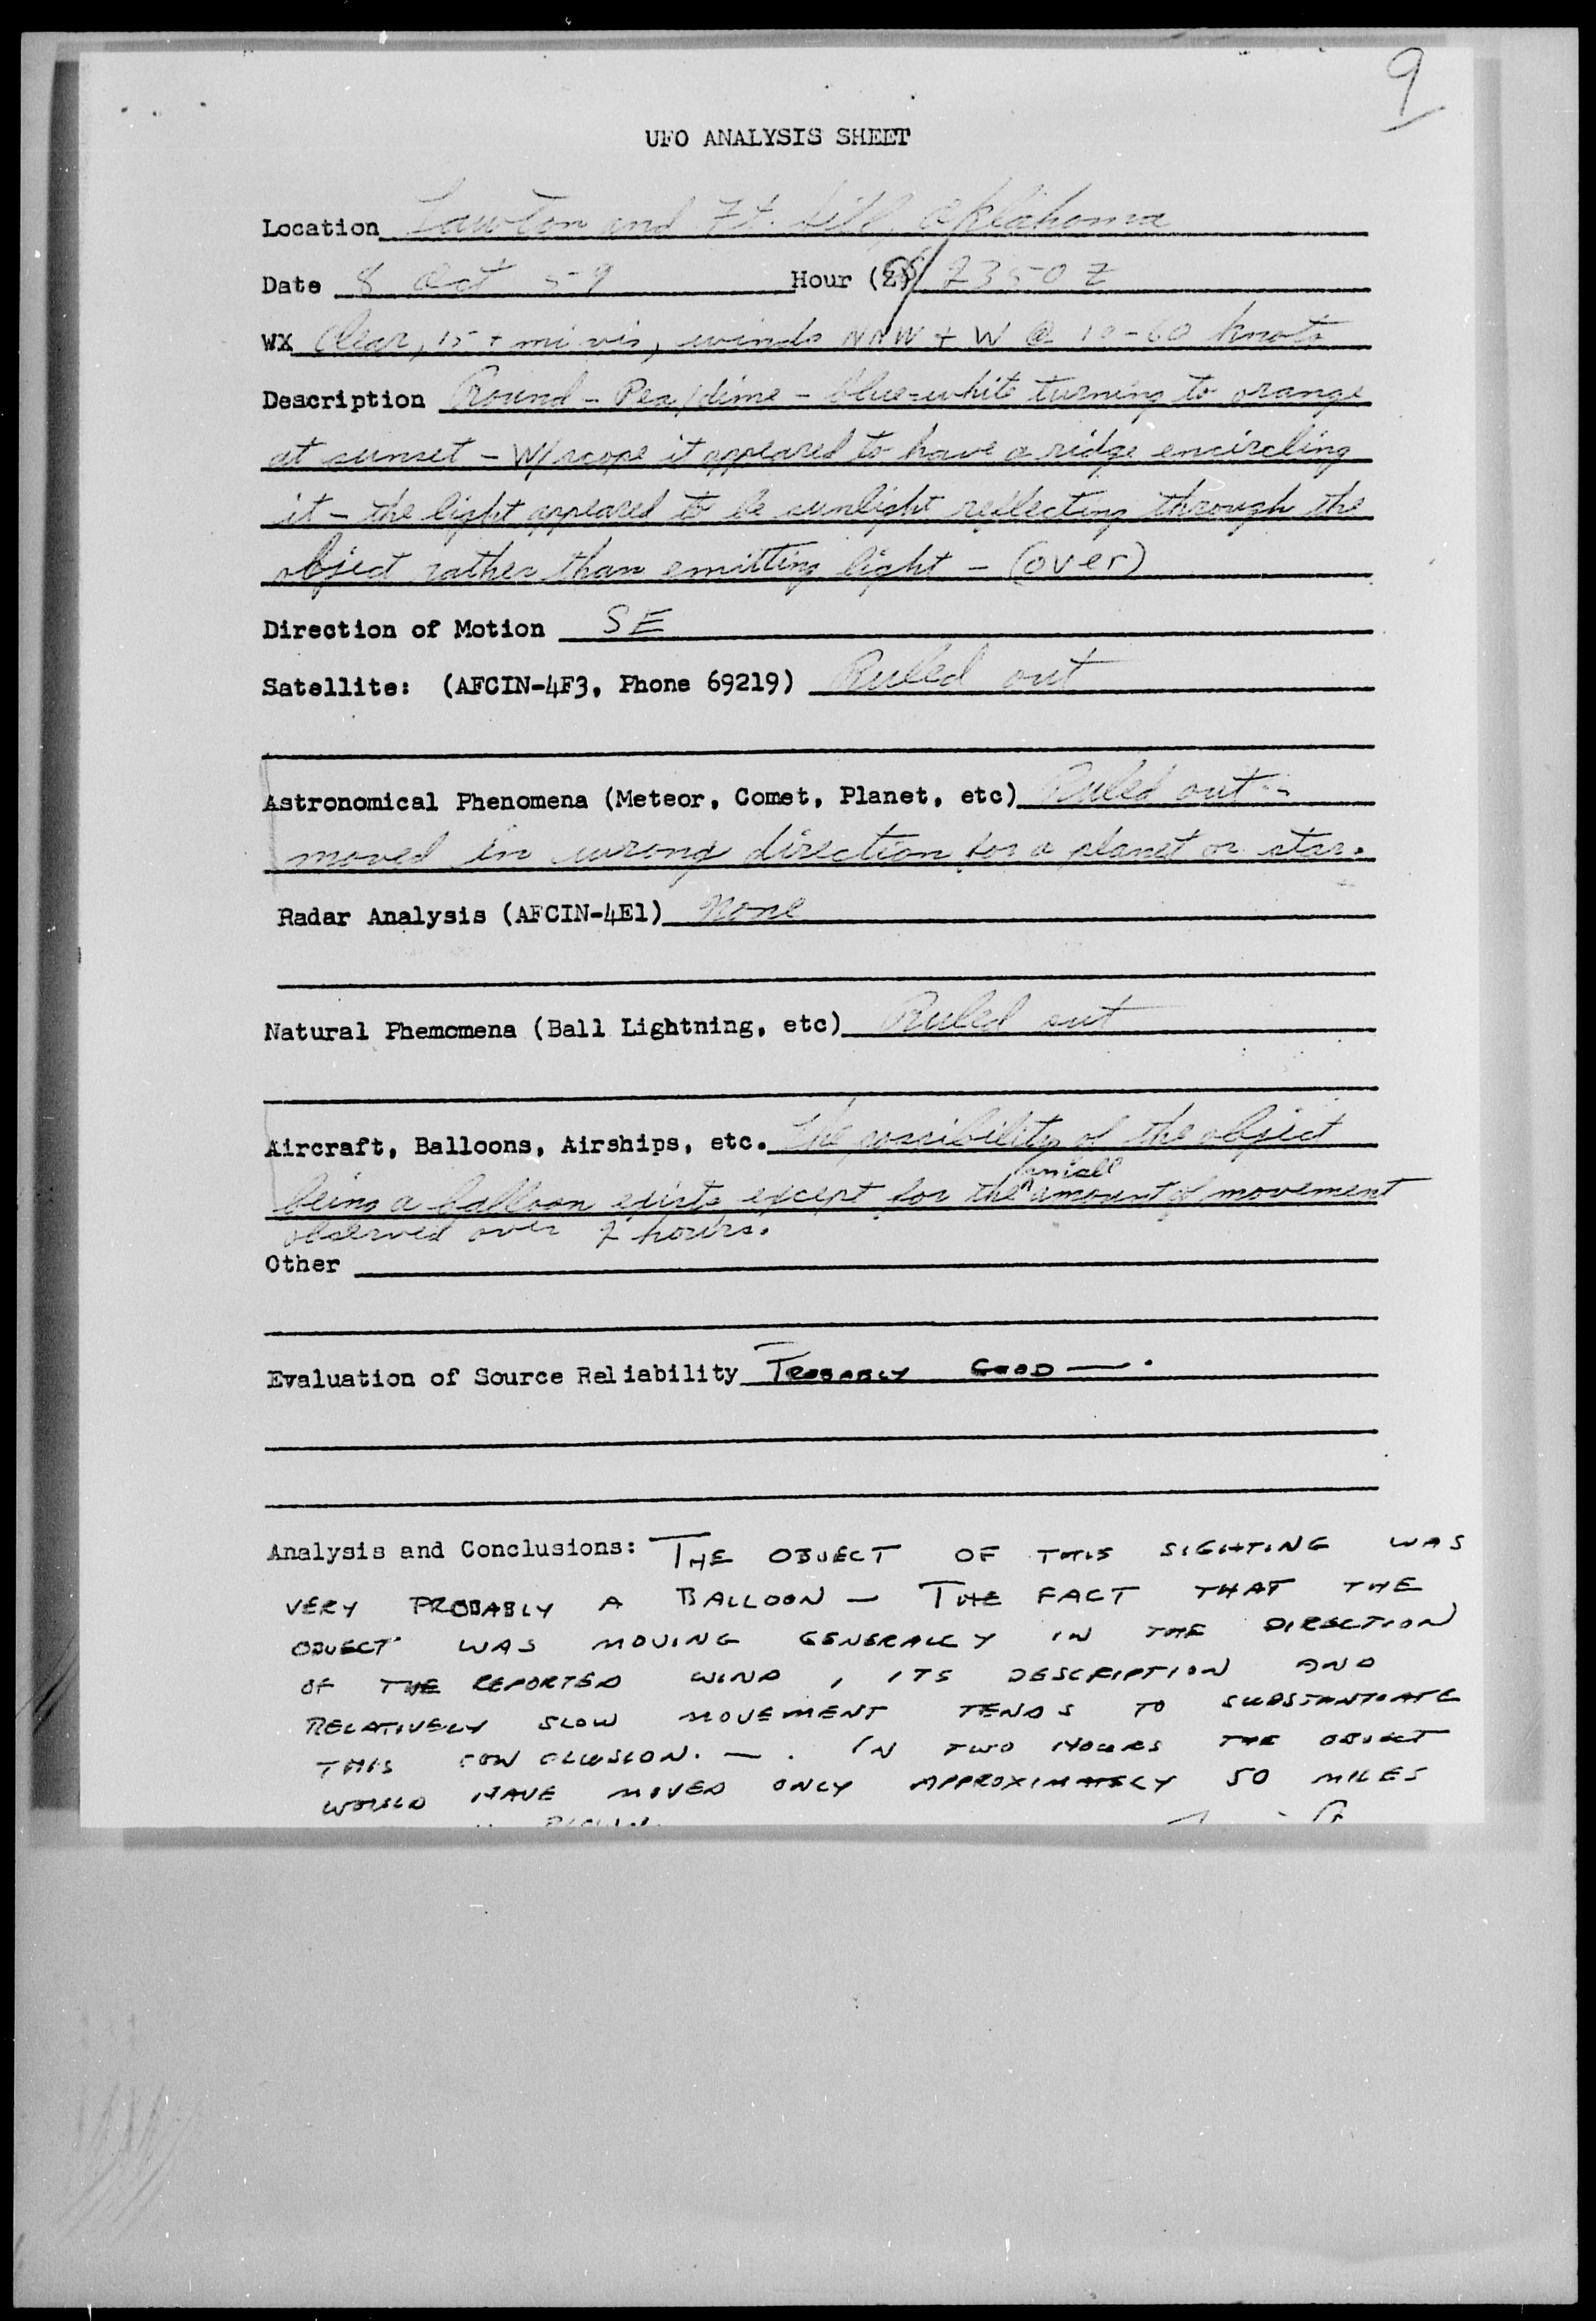 9
UFO ANALYSIS SHEET
Location Lawton and Ft. Sill, Oklahoma
Date 8 Oct 59 Hour (Z) 2350 Z
WX Clear, 15 + mi vis, winds NNW + W @ 10-60 knots
Description Round - Pea/dime - blue-white turning to orange
at sunset - W/scope it appeared to have a ridge encircling
it - the light appeared to be sunlight reflecting through the
object rather than emitting light - (over)
Direction of Motion SE
Satellite: (AFCIN-4F3, Phone 69219) Ruled out
Astronomical Phenomena (Meteor, Comet, Planet, etc) Ruled out -
moved in wrong direction for a planet or star.
Radar Analysis (AFCIN-4E1) None
Natural Phemomena (Ball Lightning, etc) Ruled out
Aircraft, Balloons, Airships, etc. The possibility of the object
being a balloon exists except for the small amount of movement
observed over 2 hours.
Other
Evaluation of Source Reliability PROBABLY GOOD —.
Analysis and Conclusions: THE OBJECT OF THIS SIGHTING WAS
VERY PROBABLY A BALLOON — THE FACT THAT THE
OBJECT WAS MOVING GENERALLY IN THE DIRECTION
OF THE REPORTED WIND, ITS DESCRIPTION AND
RELATIVELY SLOW MOVEMENT TENDS TO SUBSTANTIATE
THIS CONCLUSION. —. IN TWO HOURS THE OBJECT
WOULD HAVE MOVED ONLY APPROXIMATELY 50 MILES